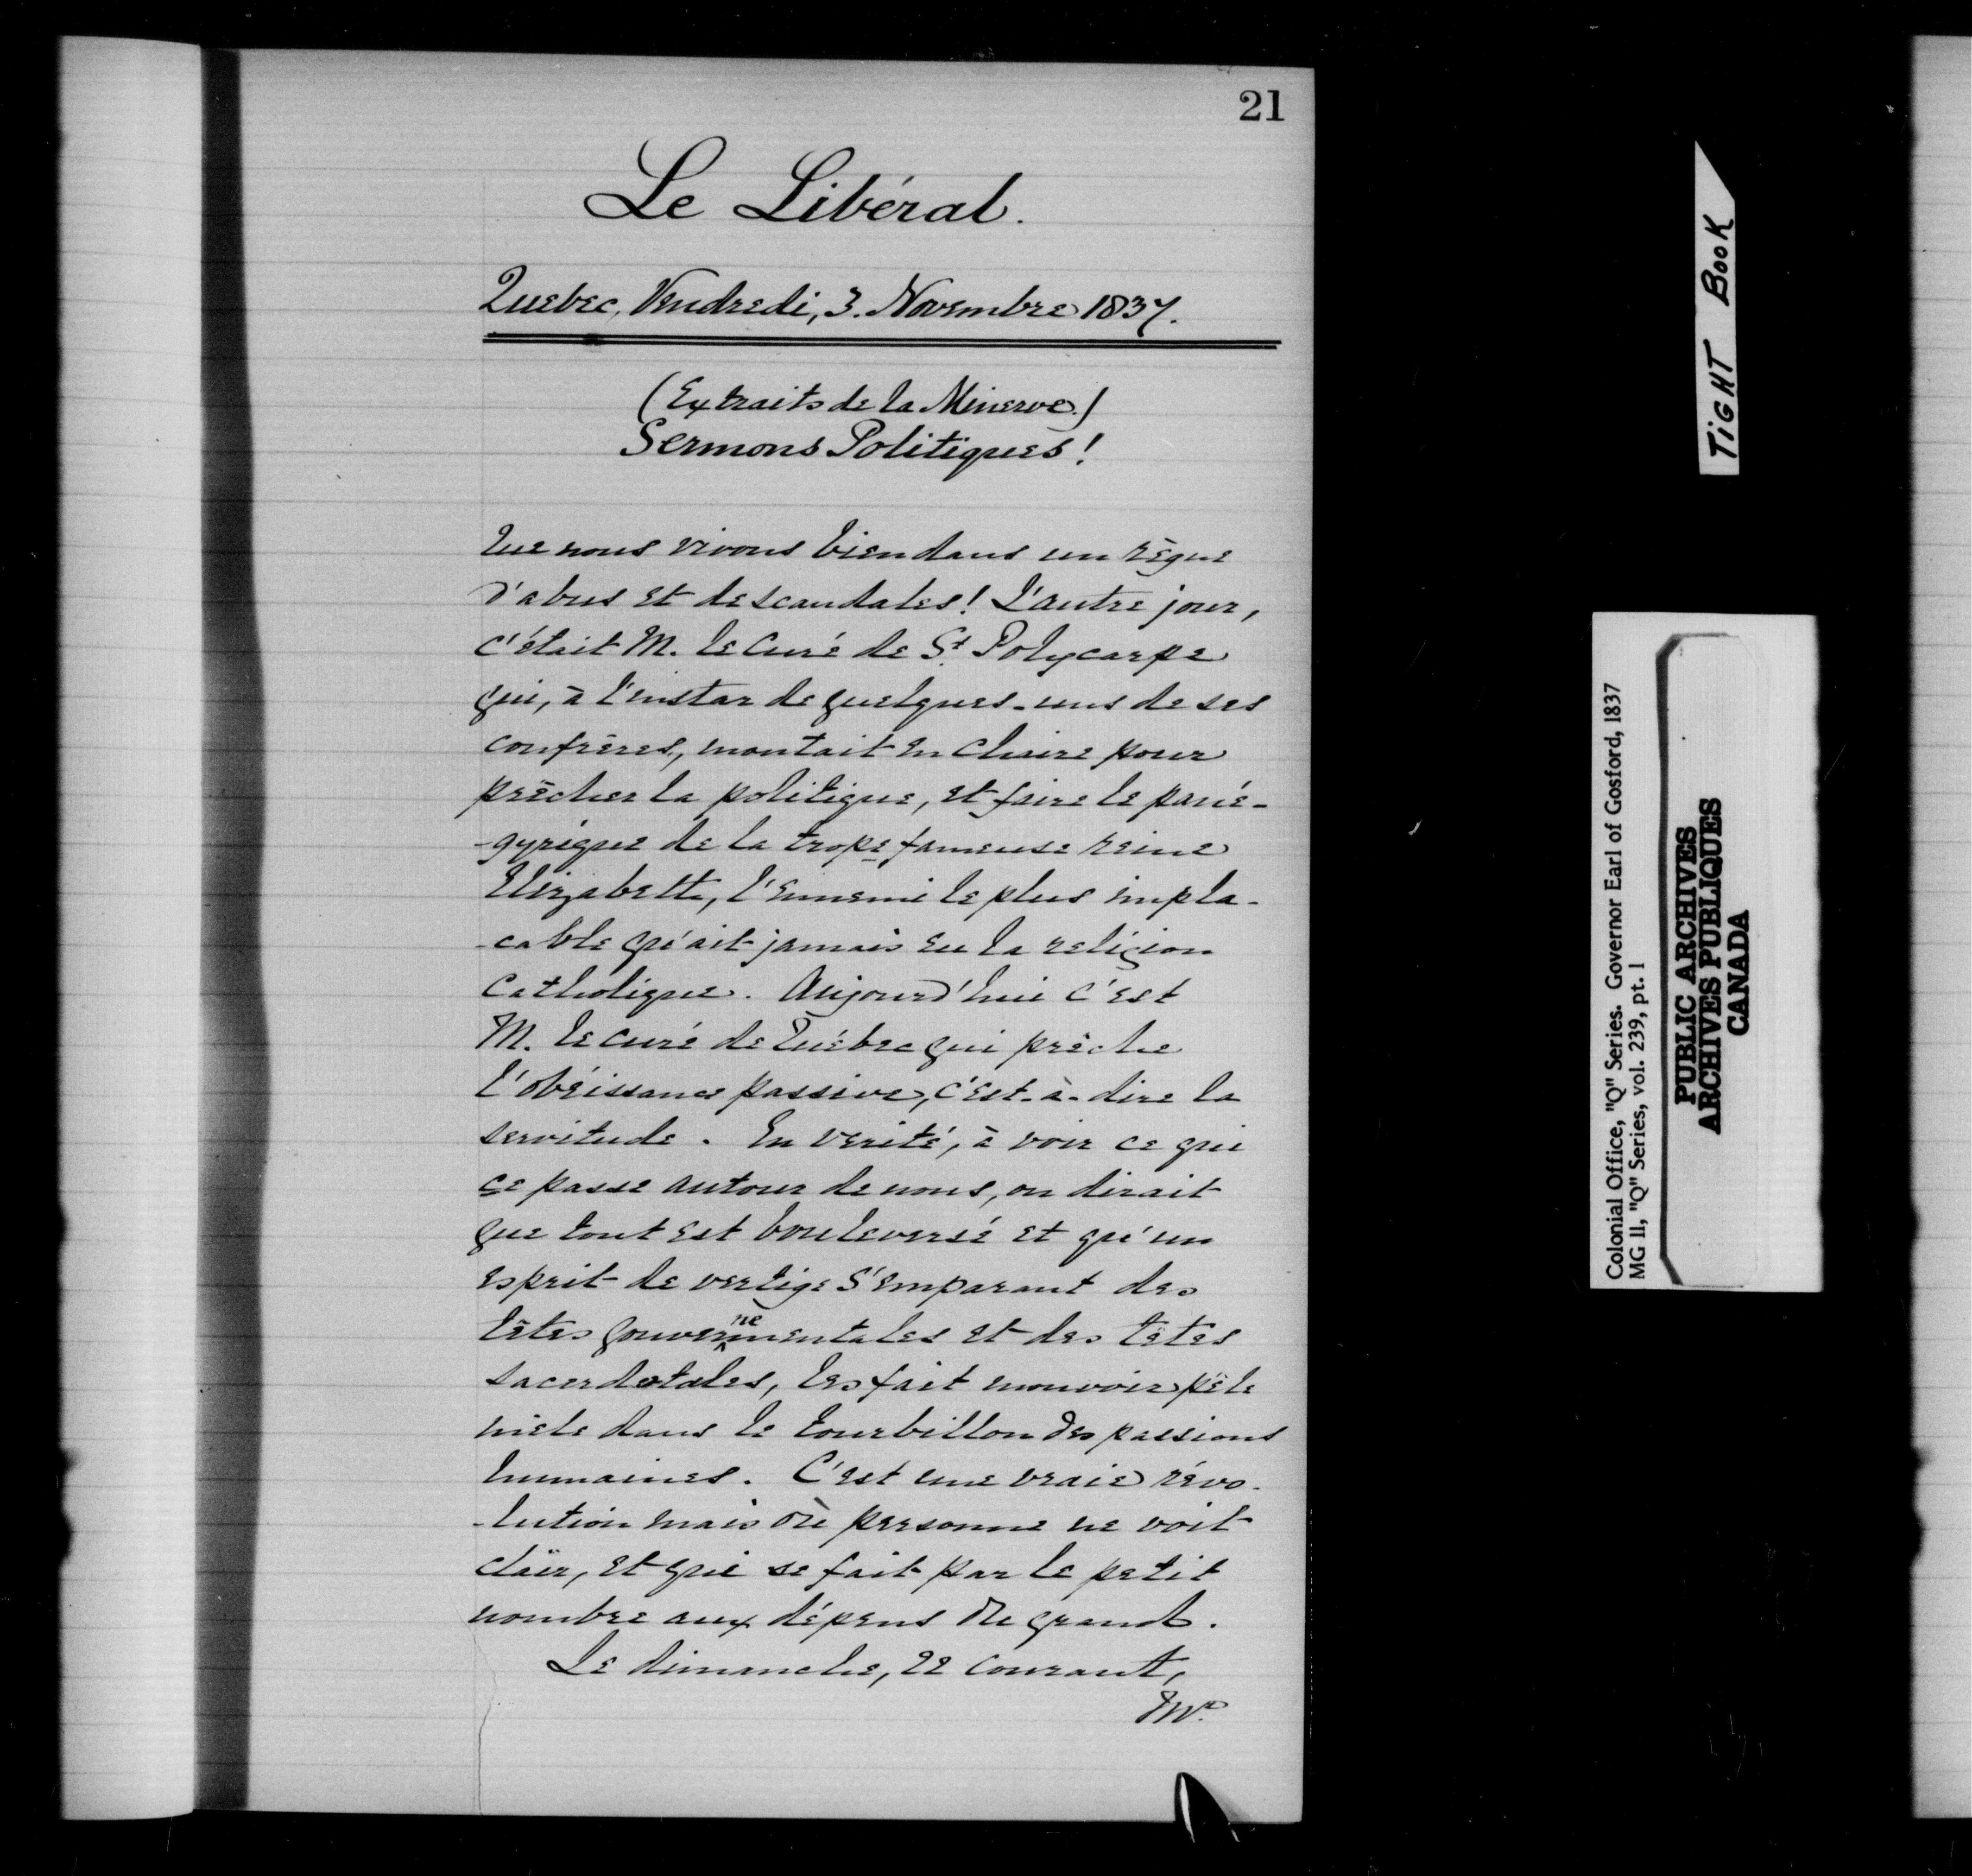 21
Le Libéral.
Quebec, Vendredi, 3. Novembre 1837.
(Extraits de la Minerve.)
Sermons Politiques!
Que nous vivons bien dans un règne
d'abus et de scandales! L'autre jour,
c'était M. le Curé de St. Polycarpe
qui, à l'instar de quelques-uns de ses
confrères, montait en chaire pour
prêcher la politique, et faire le pané-
-gyrique de la trope fameuse reine
Elizabeth, l'ennemi le plus impla-
-cable qu'ait jamais eu la religion
Catholique. Aujourd'hui c'est
M. le curé de Québec qui prêche
l'obéissance passive, c'est-à-dire la
servitude. En verité, à voir ce qui
ce passe autour de nous, on dirait
que tout est bouleversé et qu'un
esprit de vertige s'emparant des
têtes gouvernementales et des têtes
sacerdotales, les fait mouvoir pêle
mêle dans le tourbillon des passions
humaines. C'est une vraie révo-
-lution mais où personne ne voit
clair, et qui se fait par le petit
nombre aux dépens du grand.
Le dimanche, 22 courant,
Mr.
TIGHT BOOK
Colonial Office, "Q" Series. Governor Earl of Gosford, 1837
MG 11, "Q" Series, vol. 239, pt. 1
PUBLIC ARCHIVES
ARCHIVES PUBLIQUES
CANADA